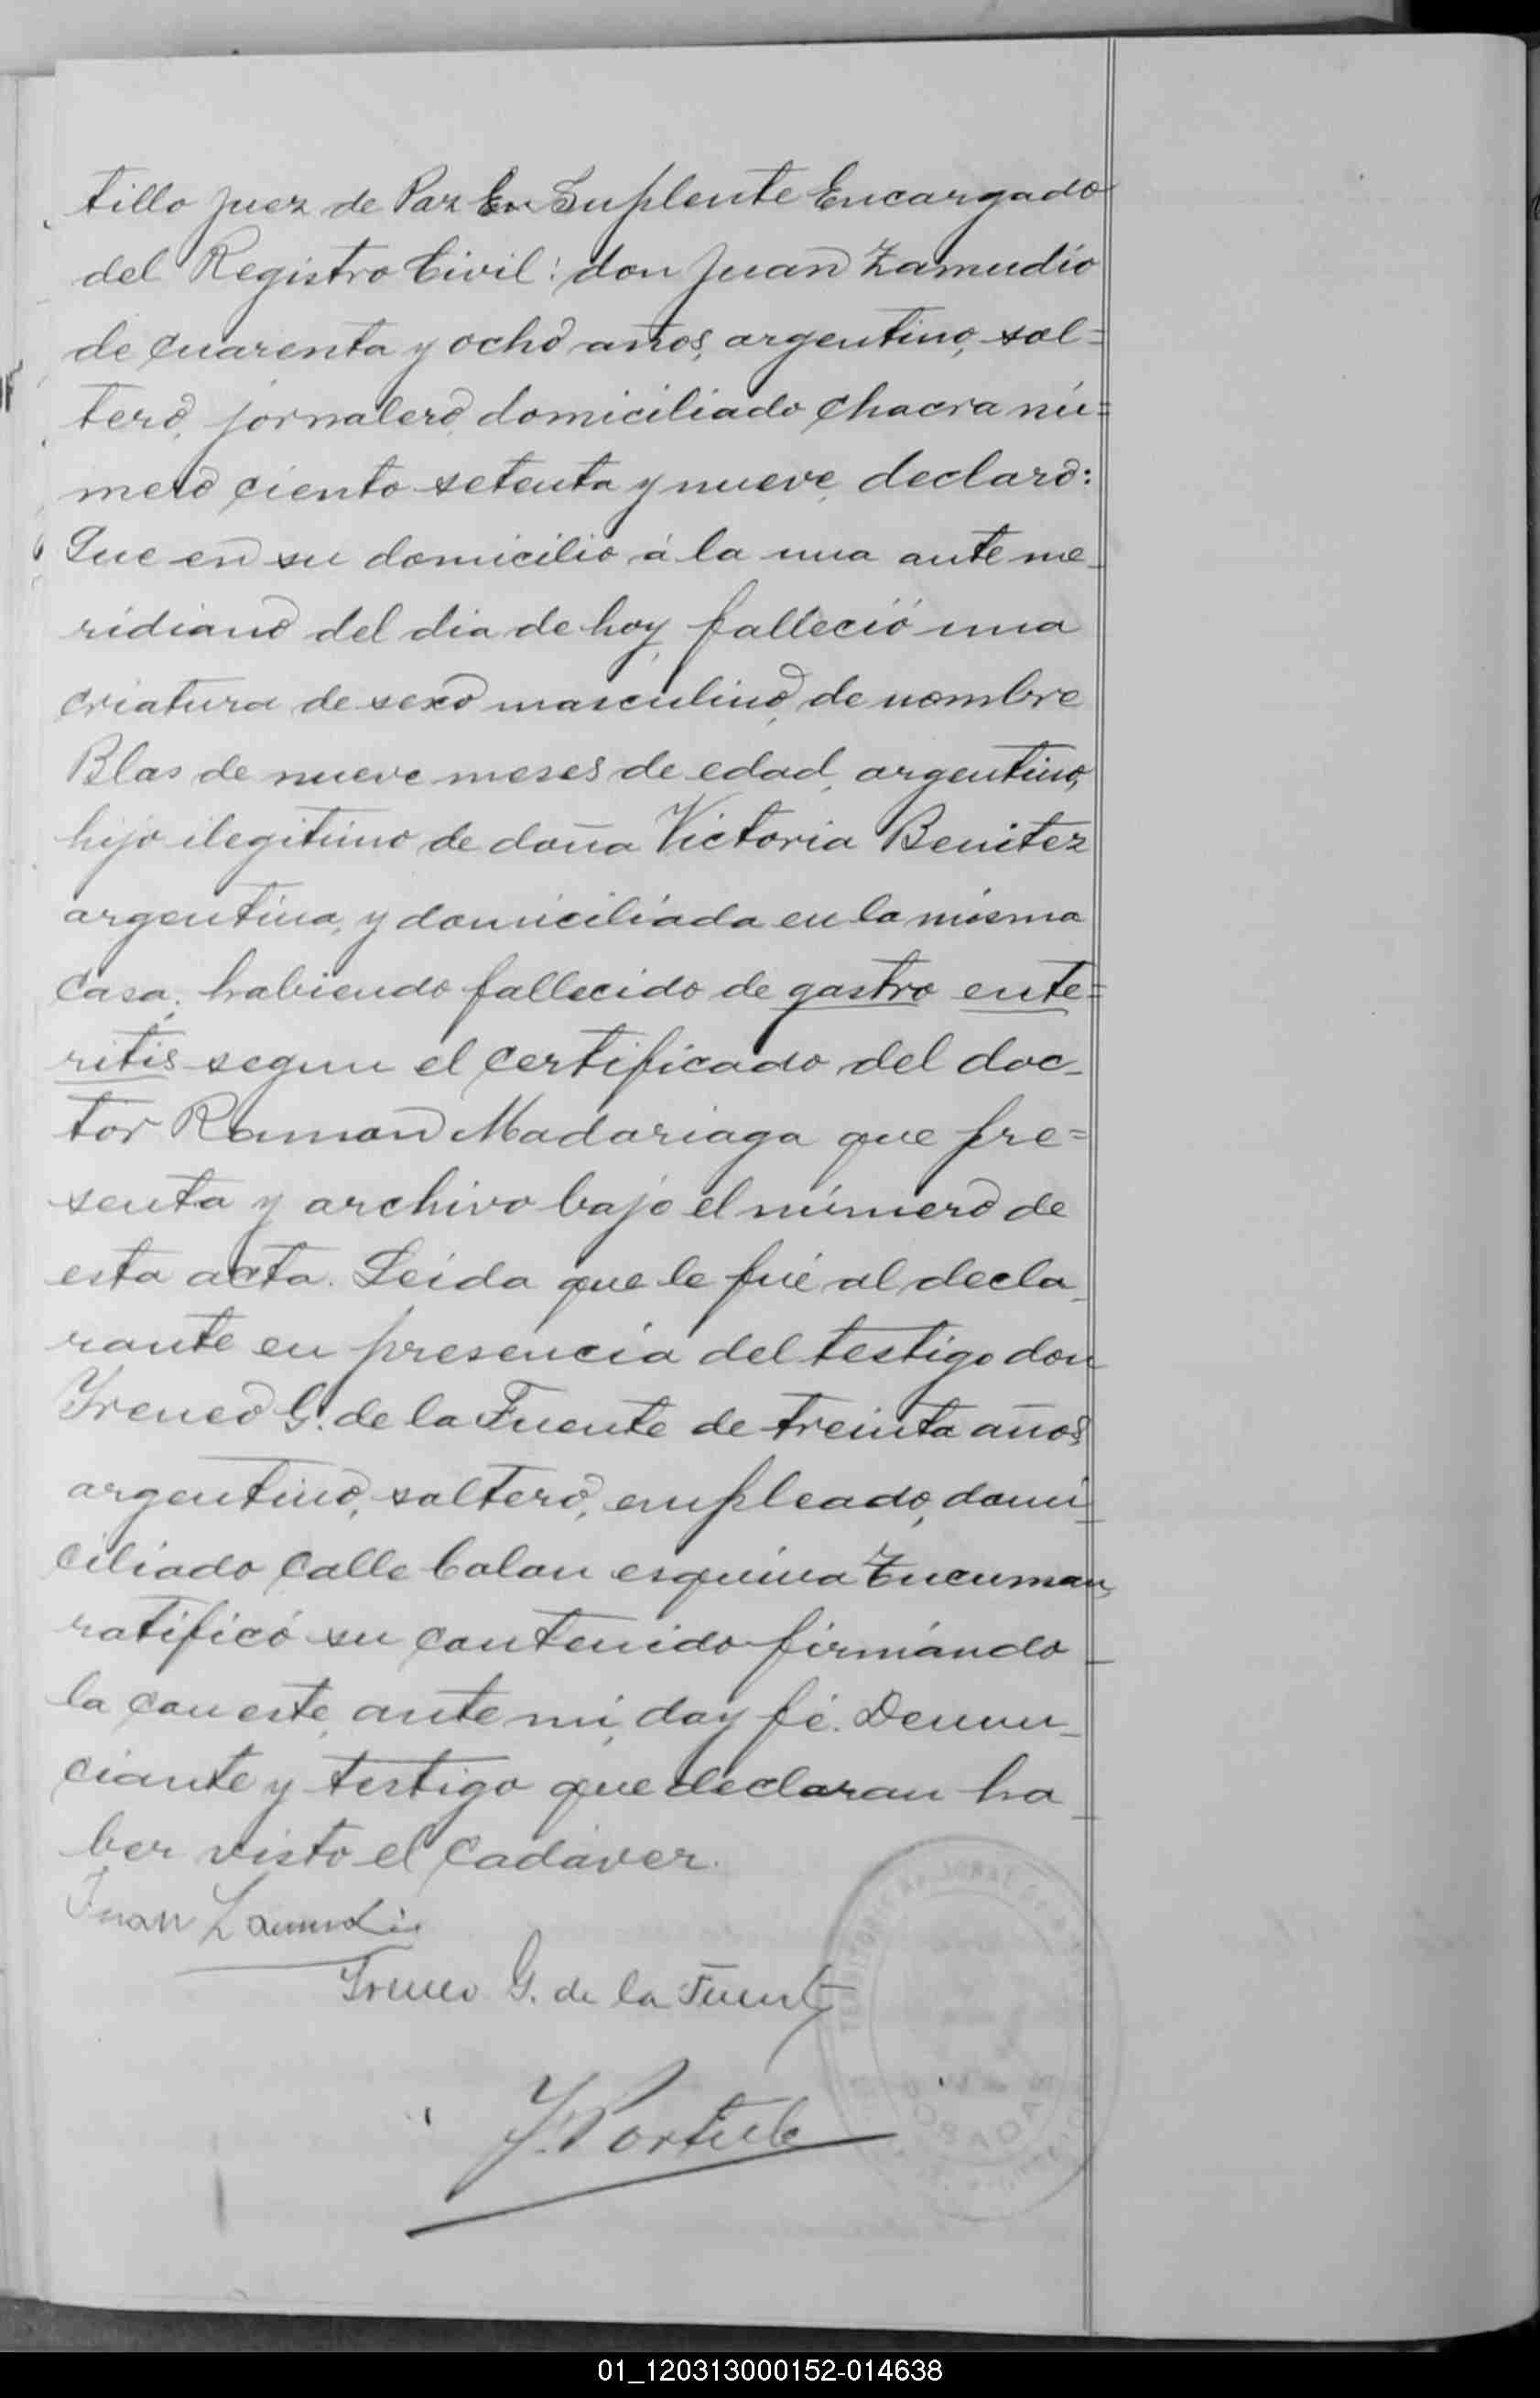 tillo Juez de Paz Suplente Encargado
del Registro Civil: don Juan Zamudio
de cuarenta y ocho años, argentino, sol=
tero, jornalero, domiciliado chacra nú=
mero ciento setenta y nueve, declaró:
Que en su domicilio á la una ante me_
ridiano del dia de hoy, falleció una
criatura de sexo masculino, de nombre
Blas de nueve meses de edad, argentino,
hijo ilegitimo de doña Victoria Benitez
argentina, y domiciliada en la misma
casa, habiendo fallecido de gastro ente=
ritis segun el certificado del doc_
tor Ramon Madariaga que pre=
senta y archivo bajo el número de
esta acta. Leida que le fué al decla_
rante en presencia del testigo don
Yreneo G. de la Fuente de treinta años,
argentino, soltero, empleado, domi_
ciliado calle Colon esquina Tucuman,
ratificó su contenido firmándo_
la con este, ante mi, doy fé. Denun_
ciante y testigo que declaran ha_
ber visto el cadáver.
Juan Zamudio
Yreneo G. de la Fuente
01_120313000152-014638